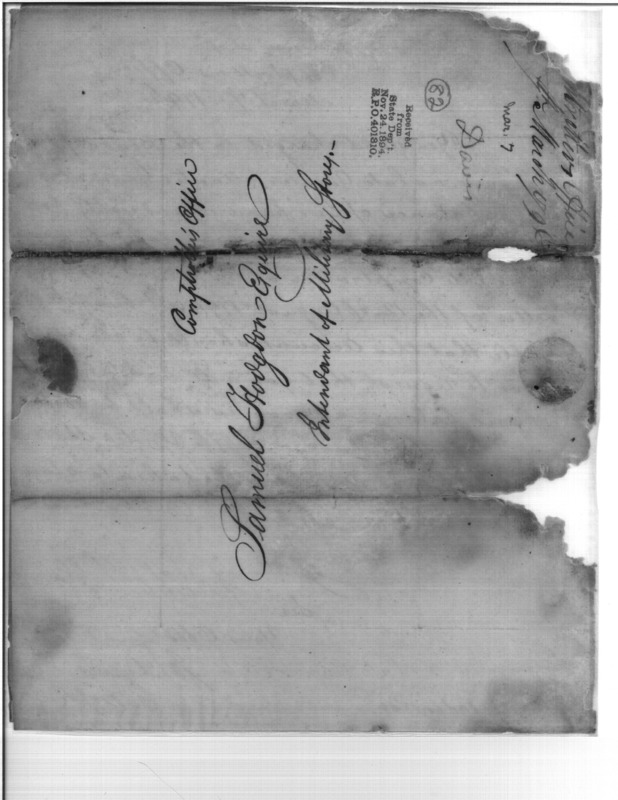 Comptroller's Office
Samuel Hodgdon Esquire
Intendant of Military Stores.—
Received
from
State Dep't.
Nov. 24, 1894.
R.P.O. 401810.
82
Davis
Mar. 7
March